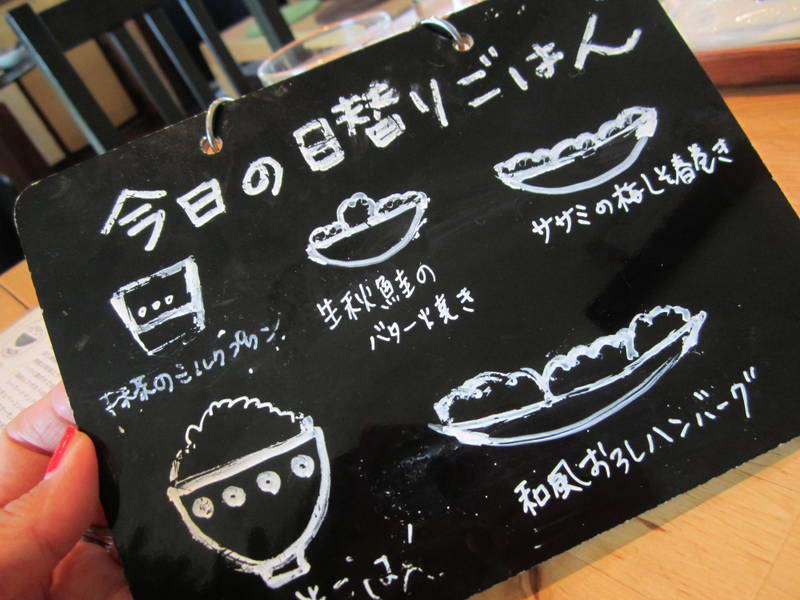 今日の日替りごはん
ササミの梅しそ春巻き
生秋鮭の
バター焼き
のミルクプリン
和風おろしハンバーグ
ごはん